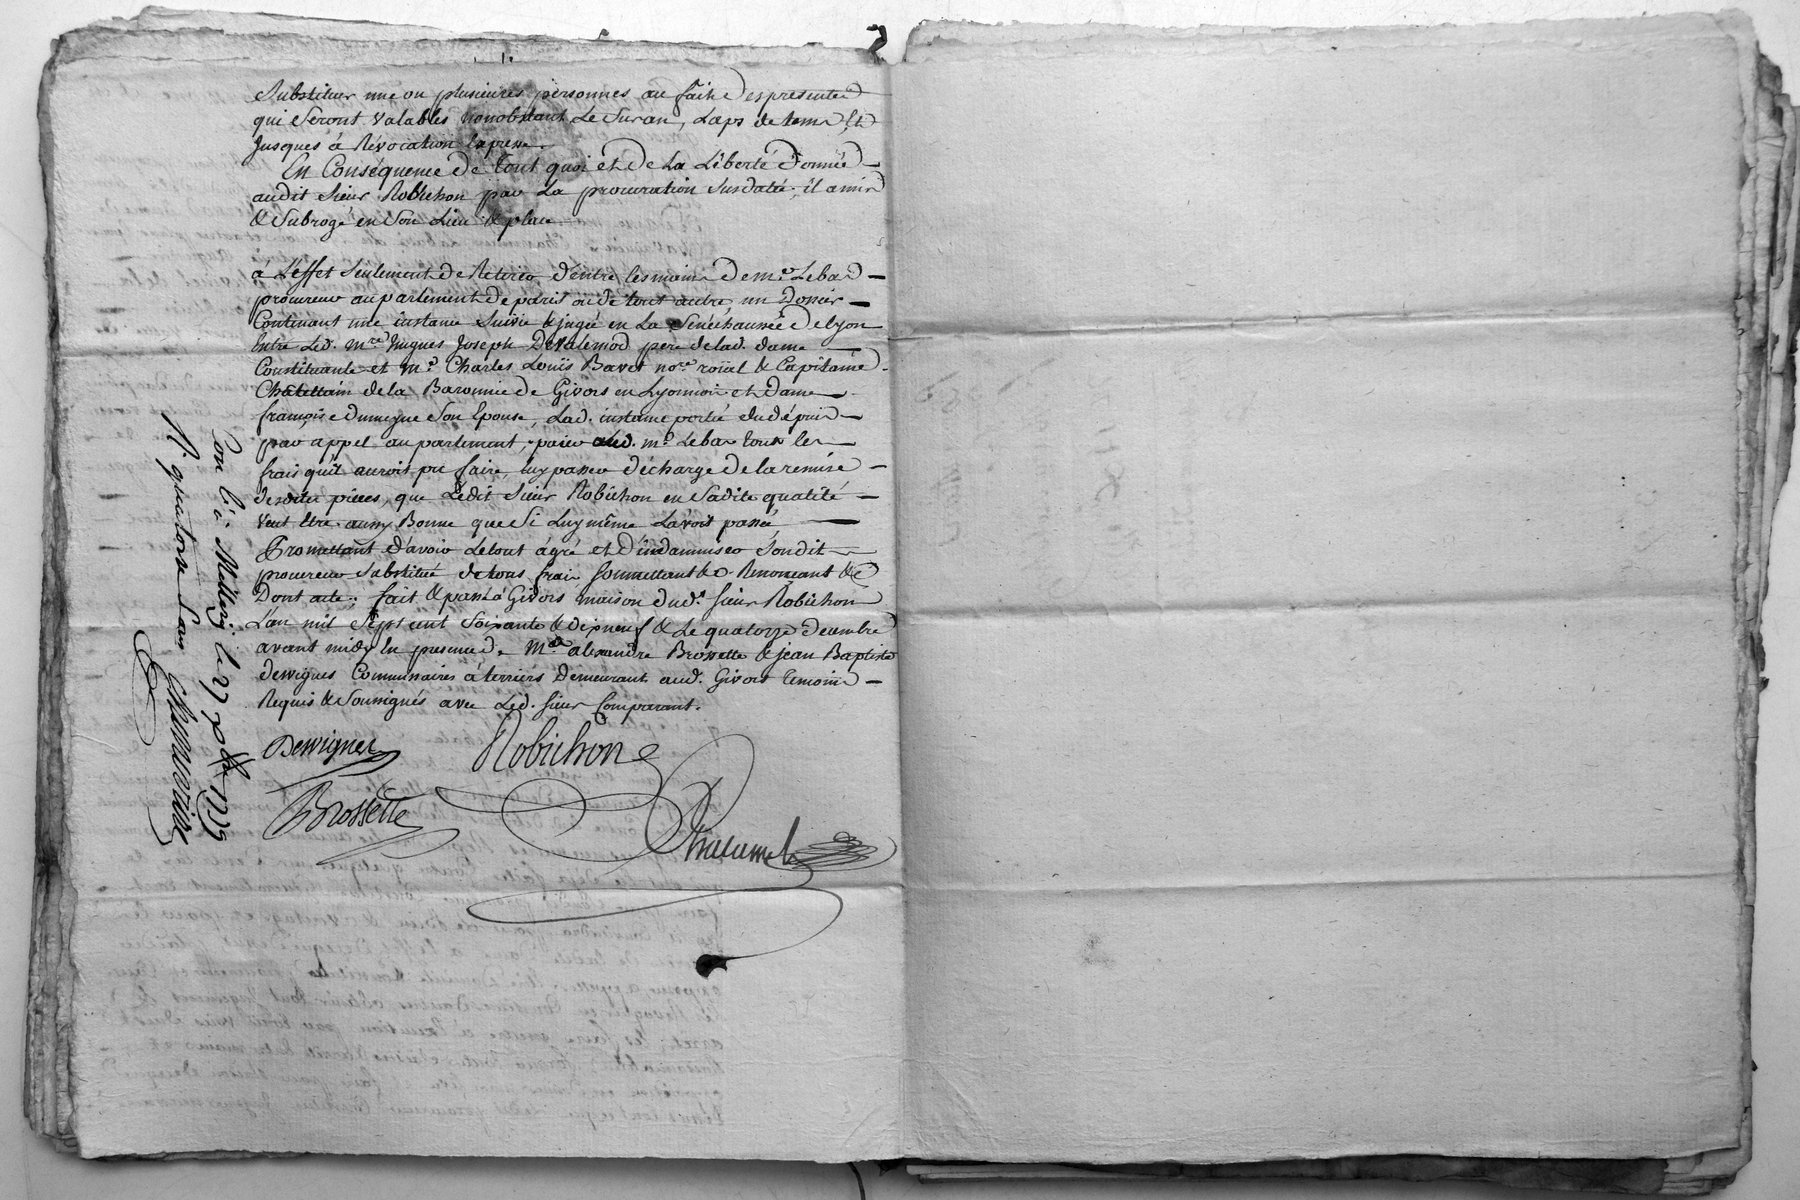 Substituer une ou plusieures personnes au fait des presentes
qui Seront valables nonobstant Le Suran, Laps de tems et
Jusques à Révocation expresse.
En Conséquence de tout quoi et de La Liberté donnée
audit Sieur Robichon par La procuration Susdatée, il a mis
& Subrogé en Son Lieu & place
à L'effet Seulement de Retirer d'entre les mains de me. Lebas
procureur au parlement de paris ou de tout autre un Dossier
Contenant une instance Suivie & jugée en La Senéchaussée de Lyon
Entre Led. mre. hugues Joseph Devalemod pere de lad. dame
Constituante et me. Charles Louis Bavet nore. roial & Capitaine
Chatellain de la Baronnie de Givors en Lyonnois et Dame
françoise Son Epouse, Lad. instance portée du dépuis
par appel au parlement, paier aud. me. Lebas tous les
frais qu'il auroit pu faire, luy passer décharge de la remise
desdites pièces, que Ledit Sieur Robichon en Sadite qualité
veut Etre aussy Bonne que Si Luy même Lavoit passée
Promettant d'avoir Le tout agré et d'indamniser Sondit
procureur Substitué de tous frais Soumettant &c. Renonceant &c
Dont acte; fait & passé à Givors maison dudt. Sieur Robichon
L'an mil Sept cent Soixante & dix neuf & Le quatorze decembre
avant midy En presence de Mes. alexandre Brossette & jean Baptiste
Dervigues Commissaires à terriers Demeurant aud. Givors temoins
Requis & Soussignés avec Led. Sieur Comparant.
Robichon
Brossette
Con. lé à le 27 xbre 1779
R. quatorze sous